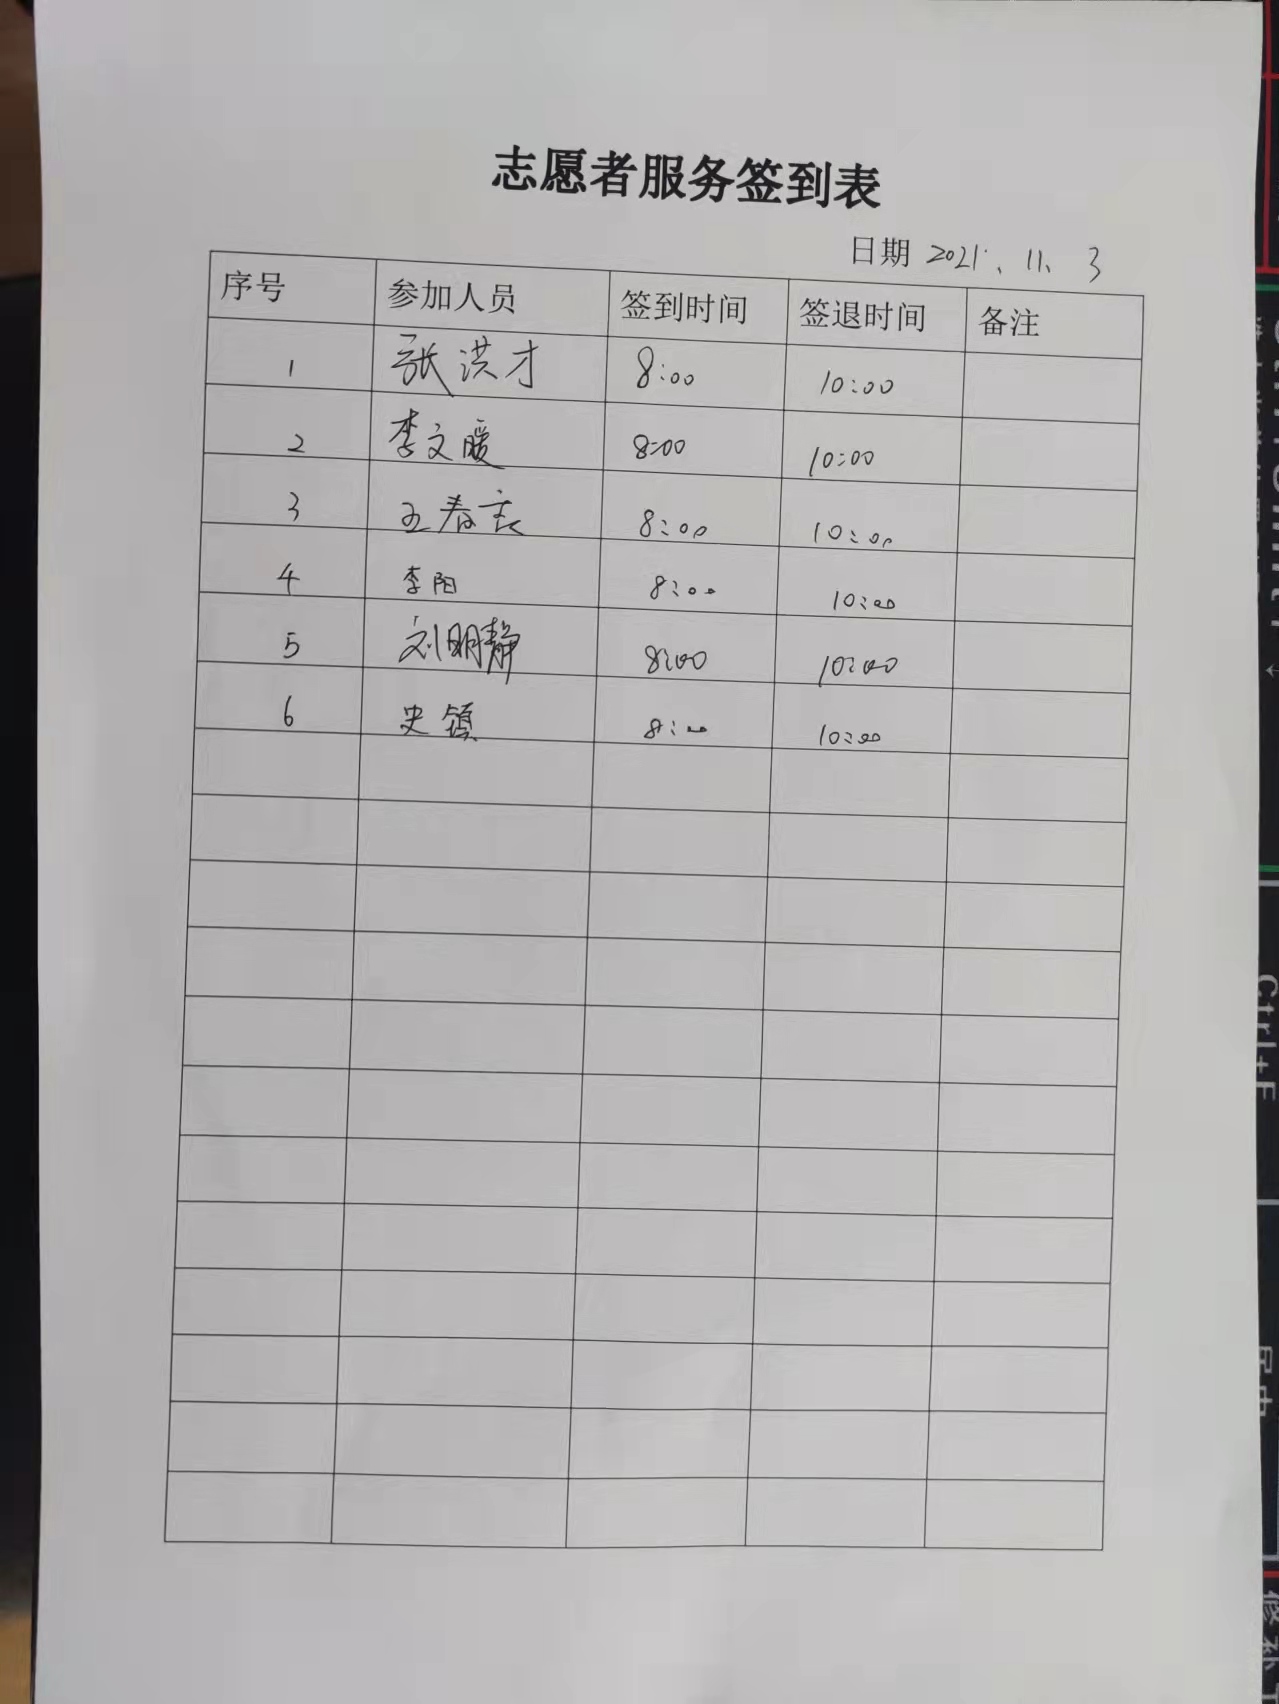 志愿者服务签到表
日期 2021、11、3
序号 参加人员 签到时间 签退时间 备注
1 张洪才 8:00 10:00
2 李文暖 8:00 10:00
3 王春 8:00 10:00
4 李阳 8:00 10:00
5 刘明静 8:00 10:00
6 史镇 8:00 10:00
Ctrl+F
居中
修补